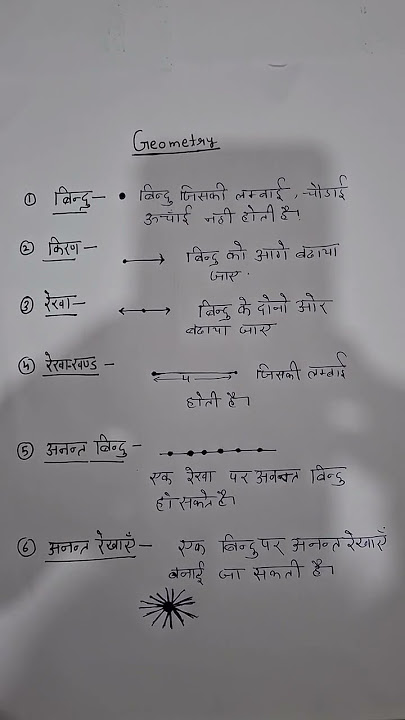 Geometry
① बिन्दु — • बिन्दु जिसकी लम्बाई, चौड़ाई
ऊचाँई नही होती है।
② किरण — बिन्दु को आगे बढाया
जाए.
③ रेखा — बिन्दु के दोनो ओर
बढाया जाए
④ रेखाखण्ड — जिसकी लम्बाई
होती है।
⑤ अनन्त बिन्दु —
एक रेखा पर अनन्त बिन्दु
हो सकते है।
⑥ अनन्त रेखाएँ — एक बिन्दु पर अनन्त रेखाएँ
बनाई जा सकती है।